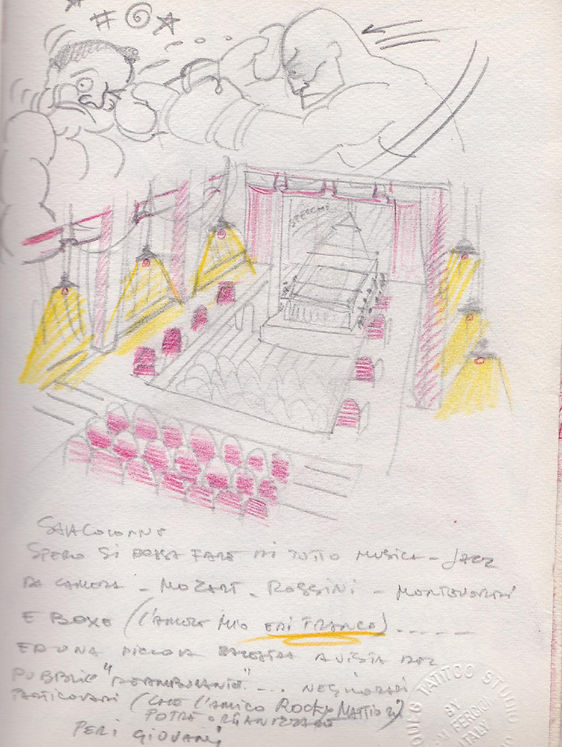 SPECCHI
SALA COLONNE
SPERO SI POSSA FARE DI TUTTO MUSICA - JAZZ
DA CAMERA - MOZART - ROSSINI - MONTEVERDI
E BOXE (L'AMORE MIO ERI FRANCO) .....
ED UNA PICCOLA PALESTRA A VISTA DEL
PUBBLICO "DEAMBULANTE" ... NEGLI ORARI
PARTICOLARI (CHE L'AMICO ROCKY MATTIOLI)
POTRÀ ORGANIZZARE
PER I GIOVANI
TATTOO STUDIO
BY
ITALY